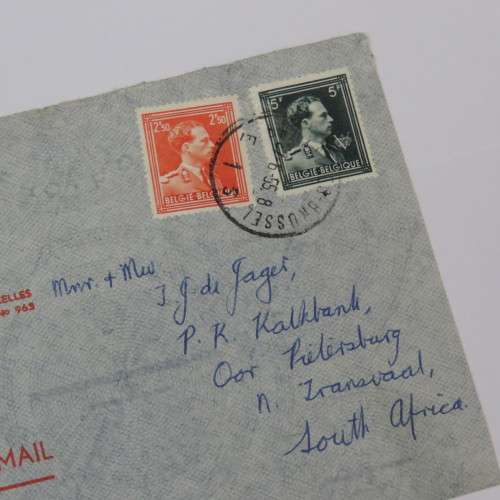 2F50 2F50
BELGIE BELGIQUE
5F 5F
BELGIE BELGIQUE
BRUSSEL
6-55 8
E 1 3
ELLES
No 963
Mnr. + Mev
J. J. de Jager,
P. K. Kalkbank,
Oor Pietersburg
N. Transvaal,
South Africa.
MAIL